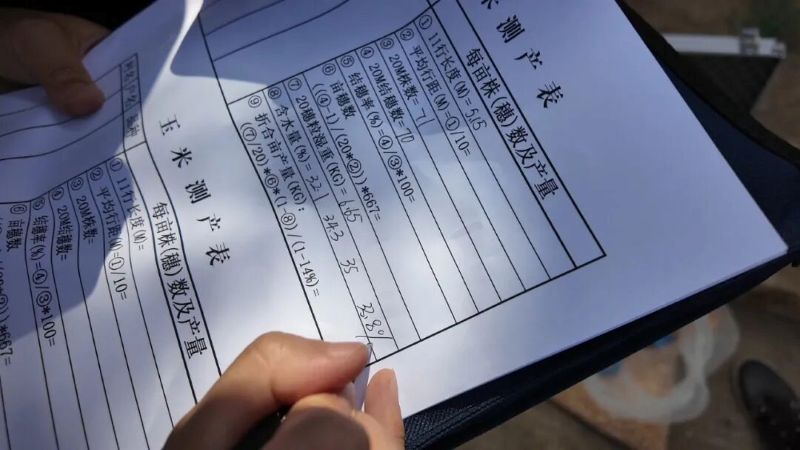 米测产表
每亩株(穗)数及产量
①11行长度(M)=5.65
②平均行距(M)=①/10=
③20M株数=71
④20M结穗数=70
⑤结穗率(%)=④/③*100=
⑥亩穗数
((④-1)/(20*②))*667=
⑦20穗粒湿重(KG)=6.65
⑧含水量(%)=32.1 34.3 35 33.8%
⑨折合亩产量(KG):
(⑦/20)*⑥*(1-⑧)/(1-14%)=
玉米测产表
品种
每亩株(穗)数及产量
①11行长度(M)=
②平均行距(M)=①/10=
③20M株数=
④20M结穗数=
⑤结穗率(%)=④/③*100=
⑥亩穗数
/(20*②))*667=